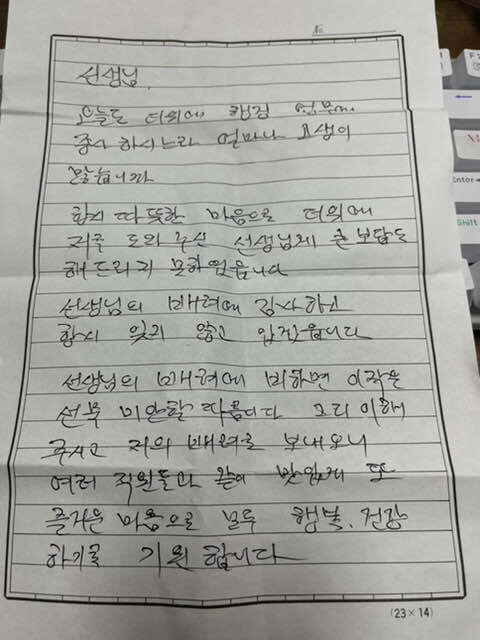 No
선생님.
오늘도 더위에 행정 업무에
종사 하시는라 얼마나 고생이
많습니까
항시 따뜻한 마음으로 더위에
저를 도와 주신 선생님께 큰 보답도
해드리지 못하였읍니다
선생님의 배려에 감사하고
항시 잊지 않고 있겠읍니다
선생님의 배려에 비하면 이작은
선물 미안할 따름이다 그리 이해
주시고 저의 배려를 보내오니
여러 직원들과 같이 맛있게 또
즐거운 마음으로 모두 행복, 건강
하기를 기원 합니다
(23×14)
Enter
Shift